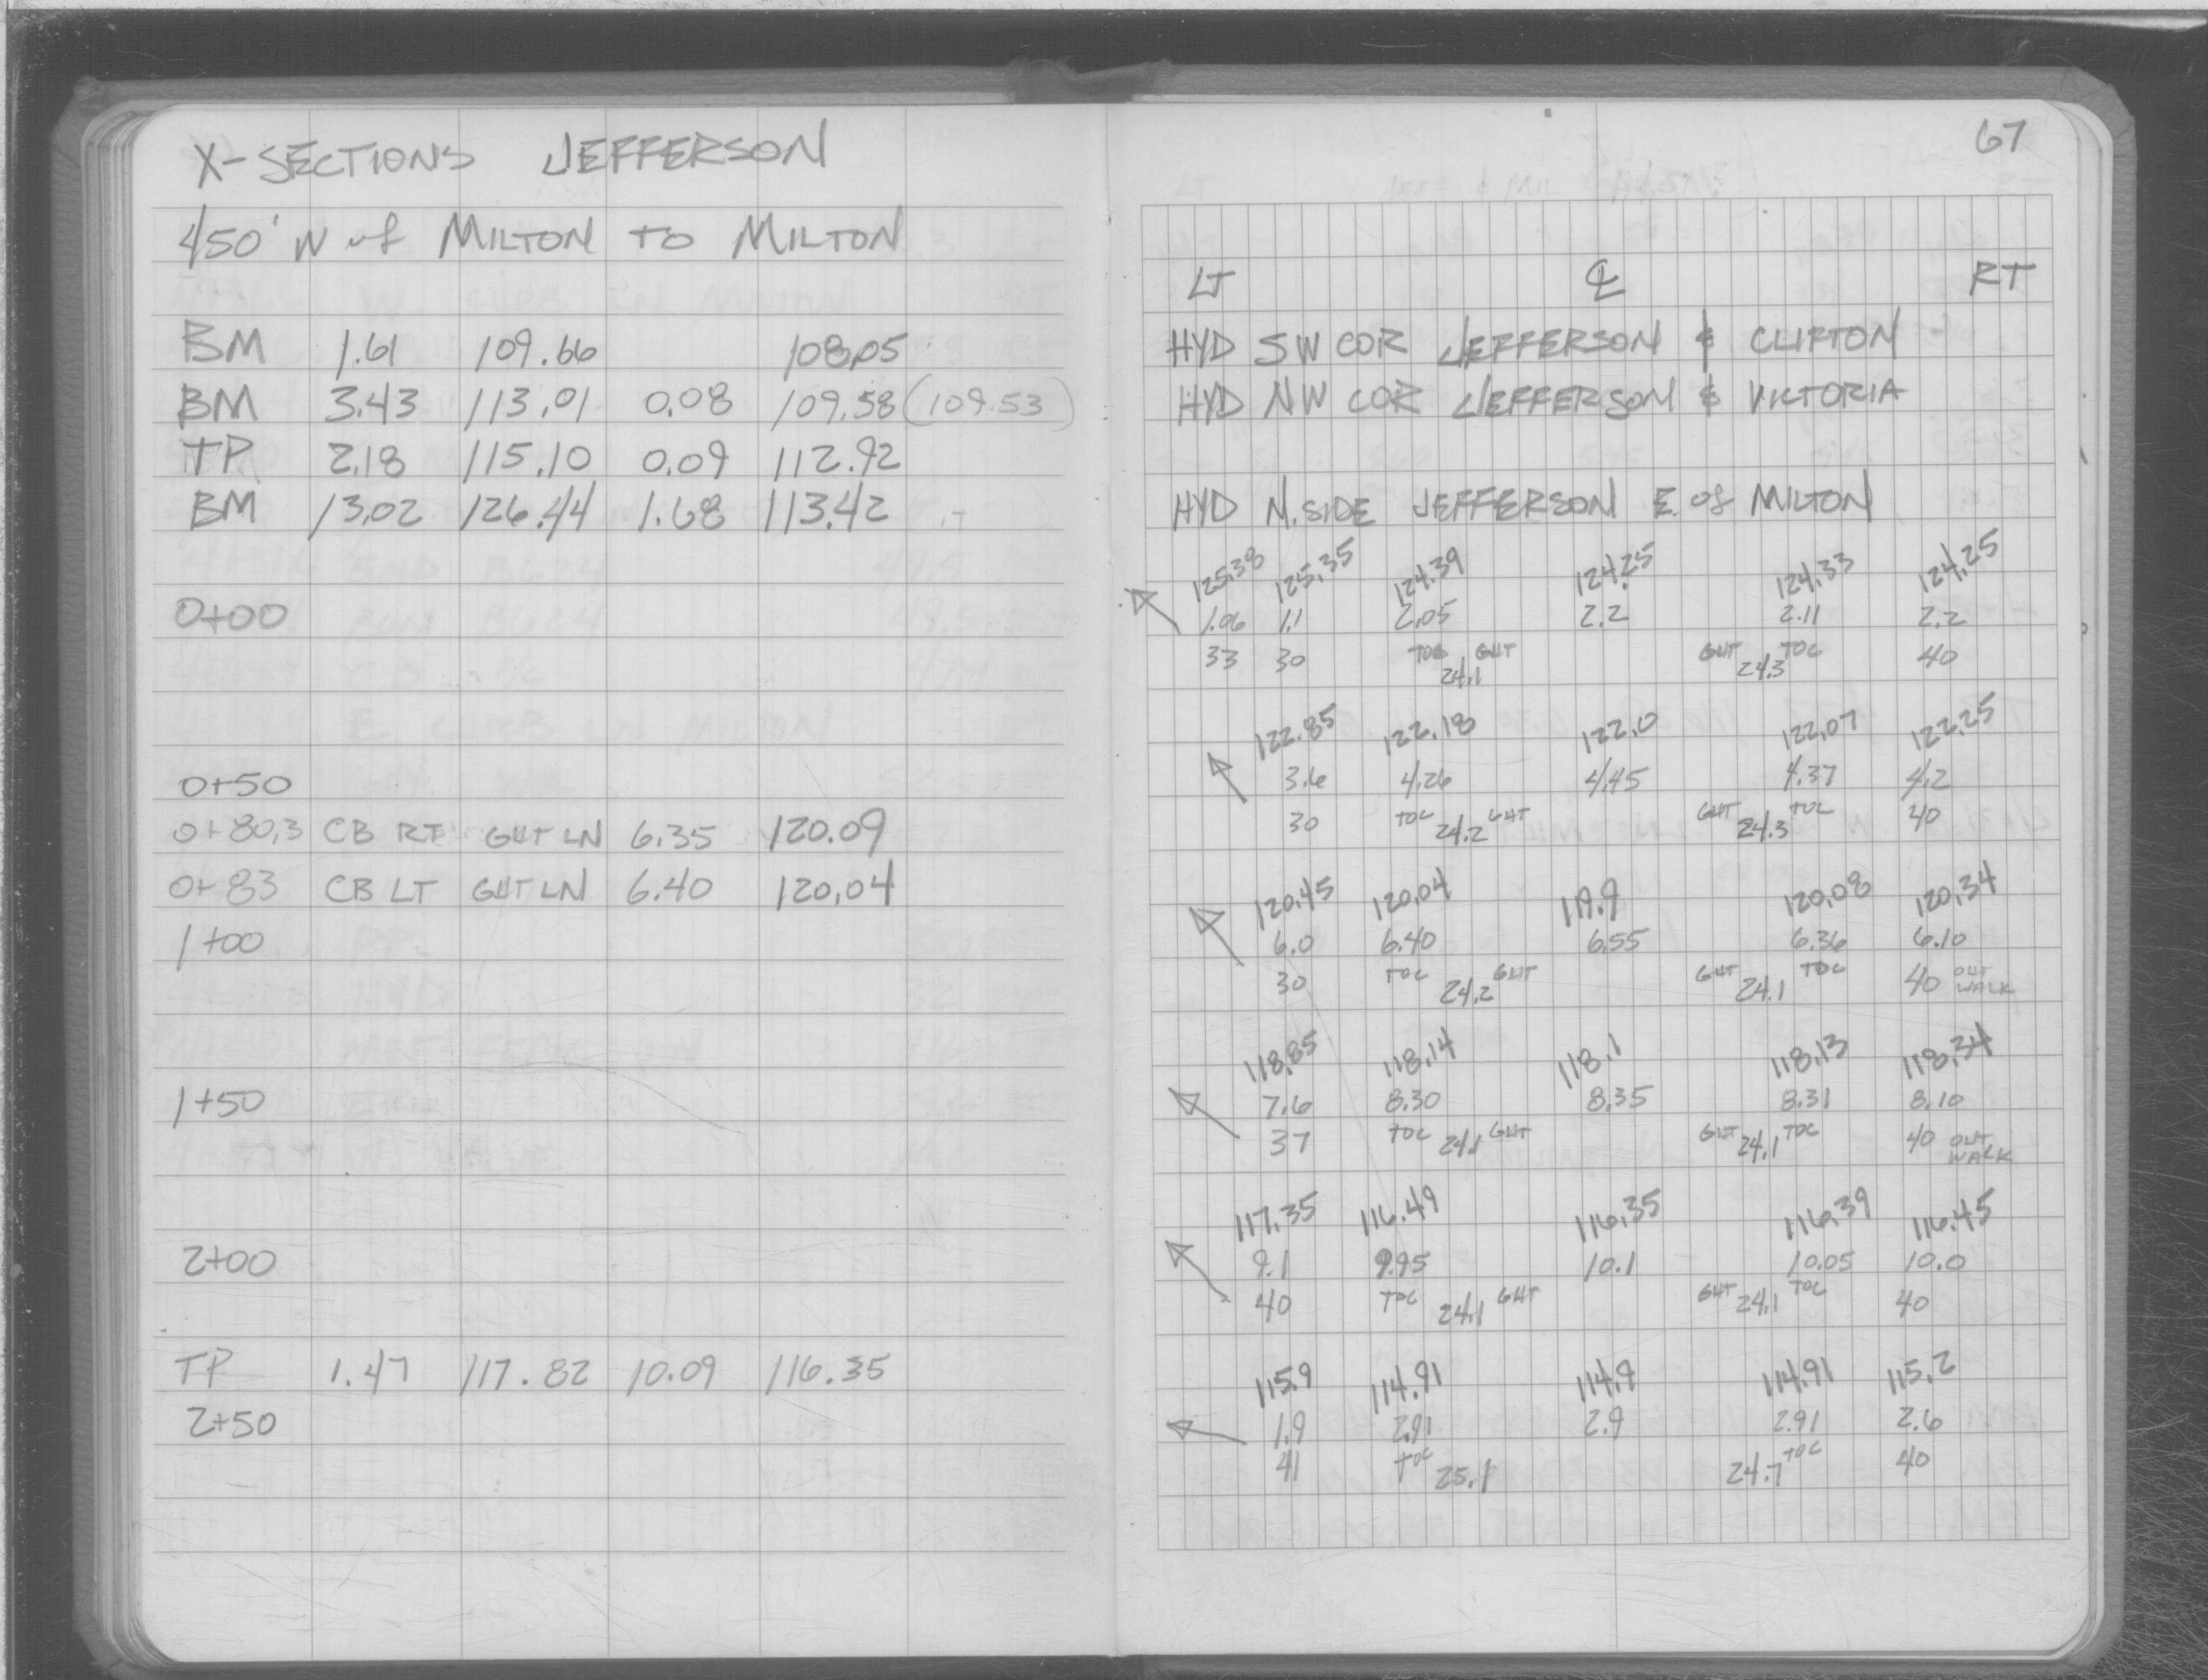 X-SECTIONS JEFFERSON
450' W of MILTON TO MILTON
BM 1.61 109.66 108.05
BM 3.43 113.01 0.08 109.58 (109.53)
TP 2.18 115.10 0.09 112.92
BM 13.02 126.44 1.68 113.42
0+00
0+50
0+80.3 CB RT GUT LN 6.35 120.09
0+83 CB LT GUT LN 6.40 120.04
1+00
1+50
2+00
TP 1.47 117.82 10.09 116.35
2+50
67
LT ℄ RT
HYD SW COR JEFFERSON & CLIFTON
HYD NW COR JEFFERSON & VICTORIA
HYD N. SIDE JEFFERSON E. of MILTON
125.38 125.35 124.39 124.25 124.33 124.25
1.06 1.1 2.05 2.2 2.11 2.2
33 30 TOC 24.1 GUT GUT 24.3 TOC 40
122.85 122.18 122.0 122.07 122.25
3.6 4.26 4.45 4.37 4.2
30 TOC 24.2 GUT GUT 24.3 TOC 40
120.45 120.04 119.9 120.08 120.34
6.0 6.40 6.55 6.36 6.10
30 TOC 24.2 GUT GUT 24.1 TOC 40 OUT WALK
118.85 118.14 118.1 118.13 118.34
7.6 8.30 8.35 8.31 8.10
37 TOC 24.1 GUT GUT 24.1 TOC 40 OUT WALK
117.35 116.49 116.35 116.39 116.45
9.1 9.95 10.1 10.05 10.0
40 TOC 24.1 GUT GUT 24.1 TOC 40
115.9 114.91 114.9 114.91 115.2
1.9 2.91 2.9 2.91 2.6
41 TOC 25.1 24.7 TOC 40